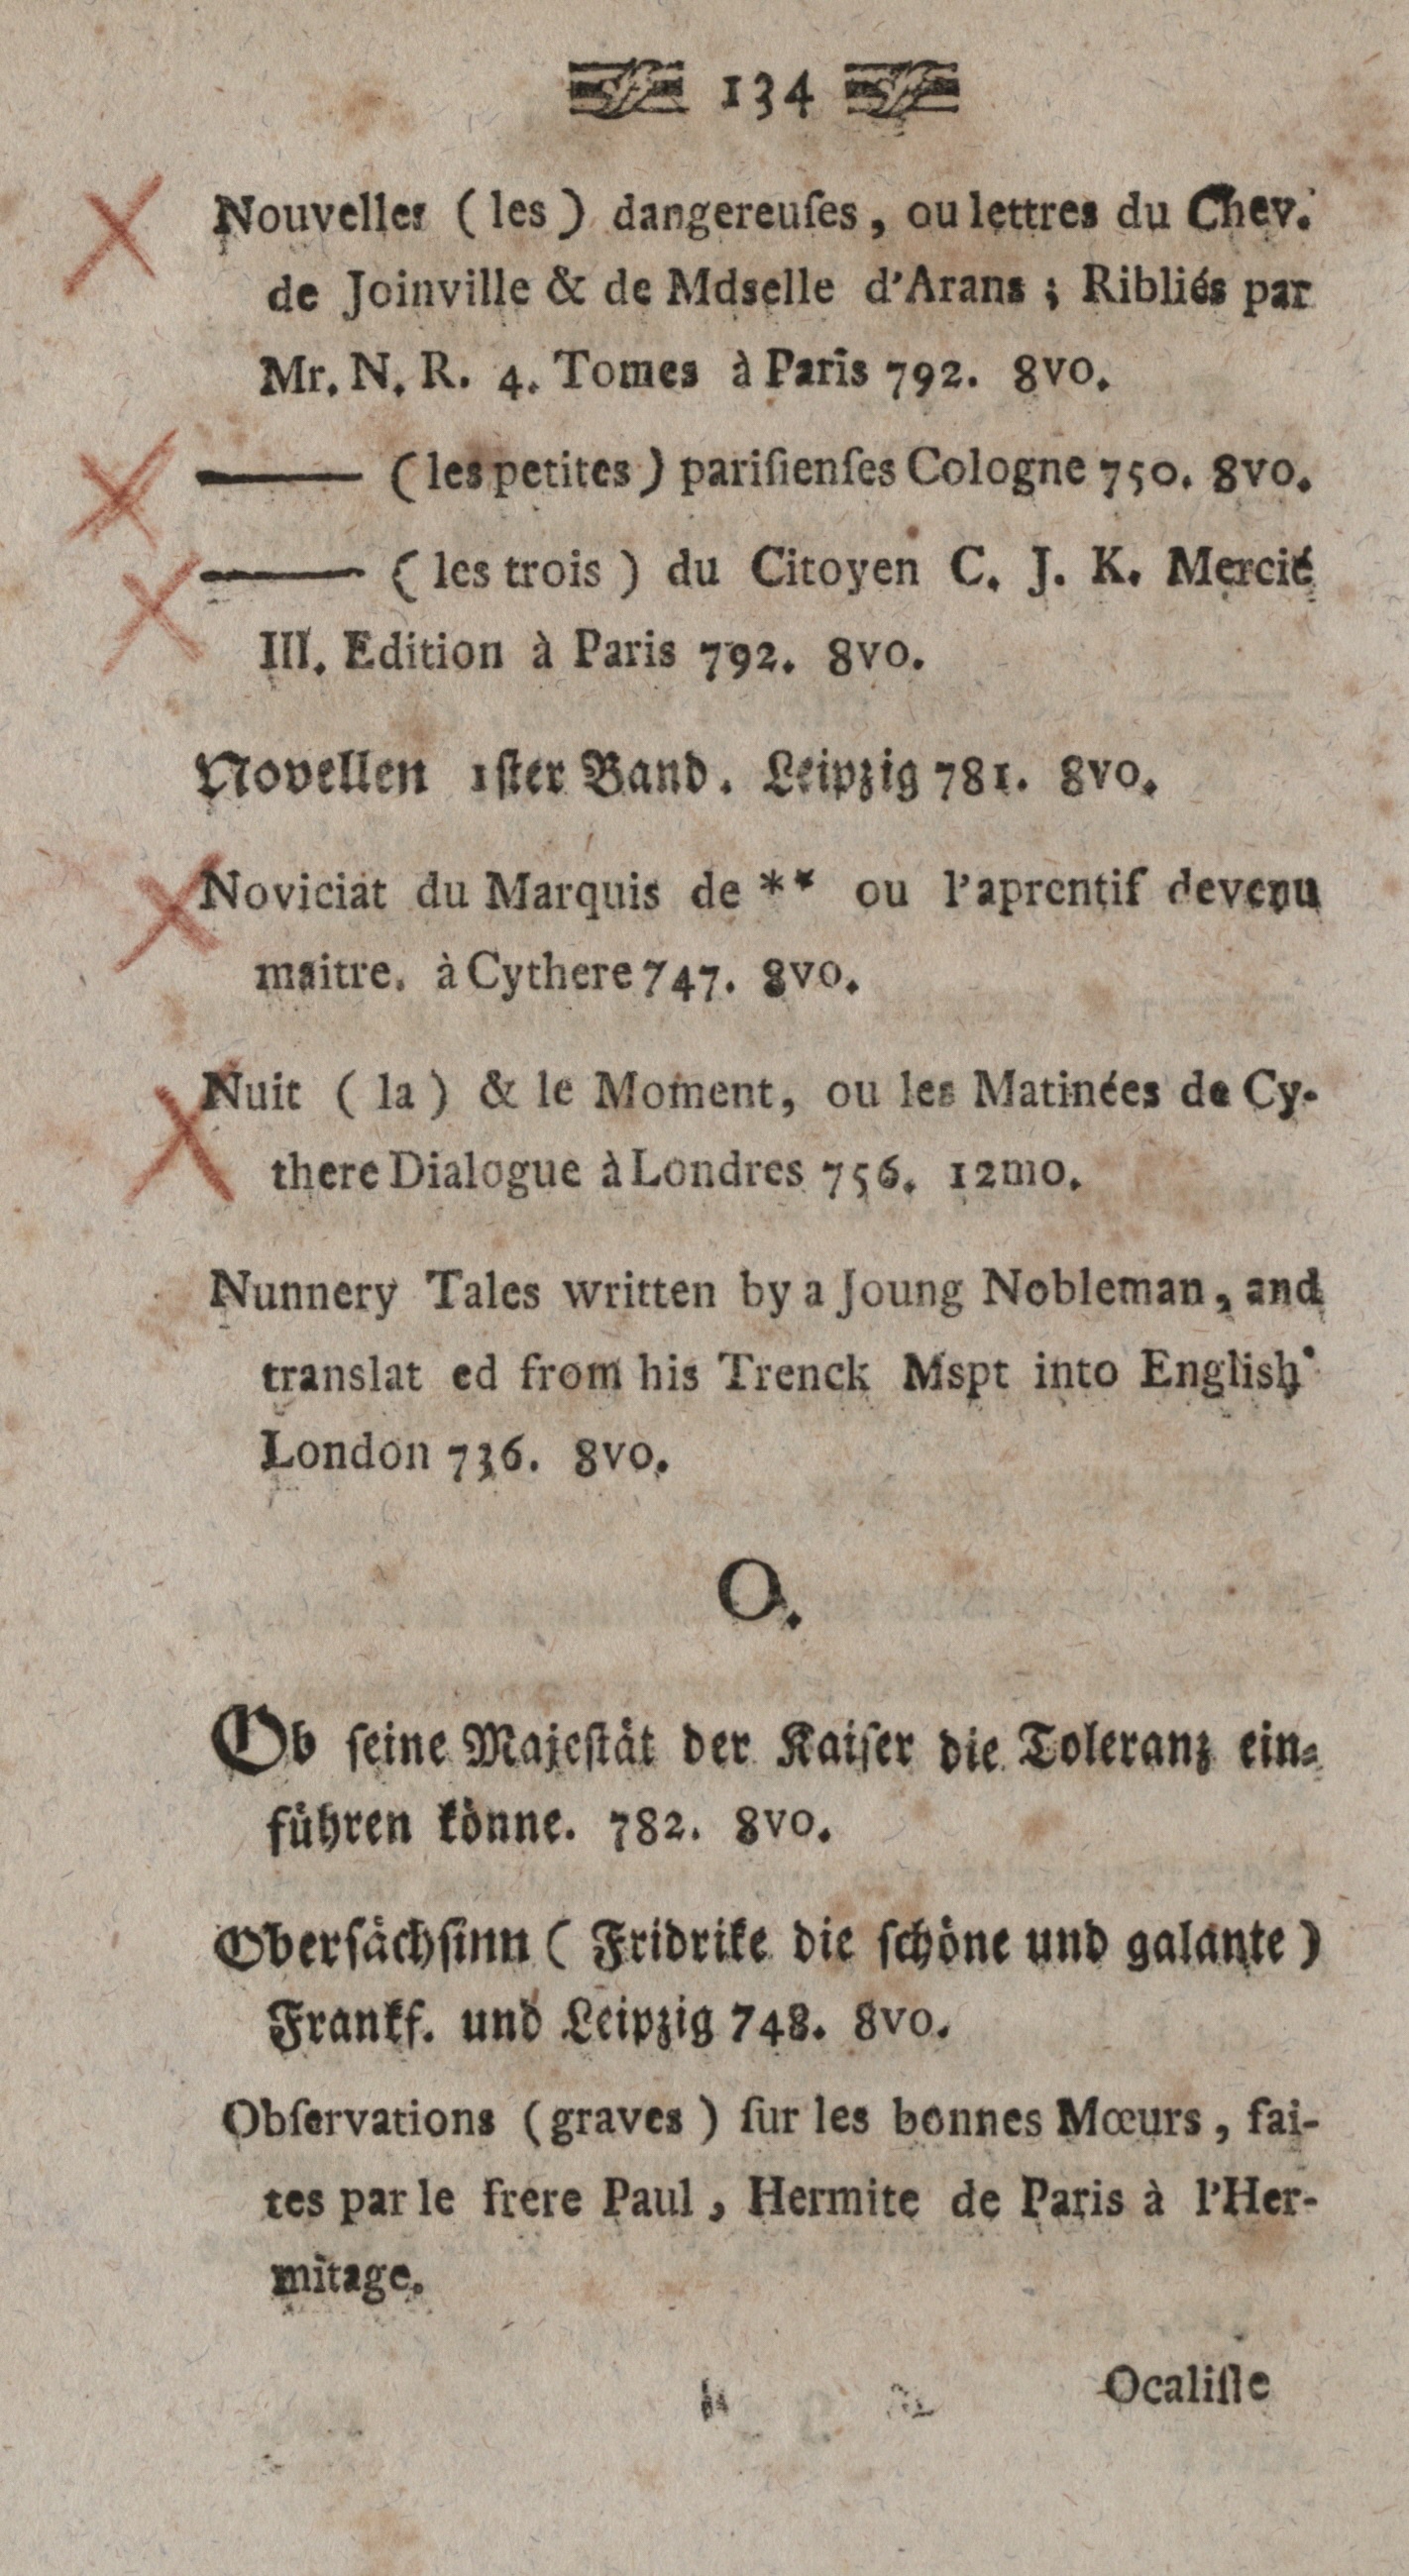 134
Nouvelles (les) dangereuſes, ou lettres du Chev.
de Joinville & de Mdselle d'Arans; Ribliés par
Mr. N. R. 4. Tomes à Paris 792. 8vo.
——— (les petites) pariſienſes Cologne 750. 8vo.
——— (les trois) du Citoyen C. J. K. Mercié
III. Edition à Paris 792. 8vo.
Novellen 1ſter Band. Leipzig 781. 8vo.
Noviciat du Marquis de ** ou l'aprentif devenu
maitre. à Cythere 747. 8vo.
Nuit (la) & le Moment, ou les Matinées de Cy-
there Dialogue à Londres 756. 12mo.
Nunnery Tales written by a Joung Nobleman, and
translat ed from his Trenck Mspt into English
London 736. 8vo.
O.
Ob ſeine Majeſtät der Kaiſer die Toleranz ein-
führen könne. 782. 8vo.
Oberſächſinn (Fridrike die ſchöne und galante)
Frankf. und Leipzig 748. 8vo.
Obſervations (graves) ſur les bonnes Mœurs, fai-
tes par le frere Paul, Hermite de Paris à l'Her-
mitage.
Ocaliſle